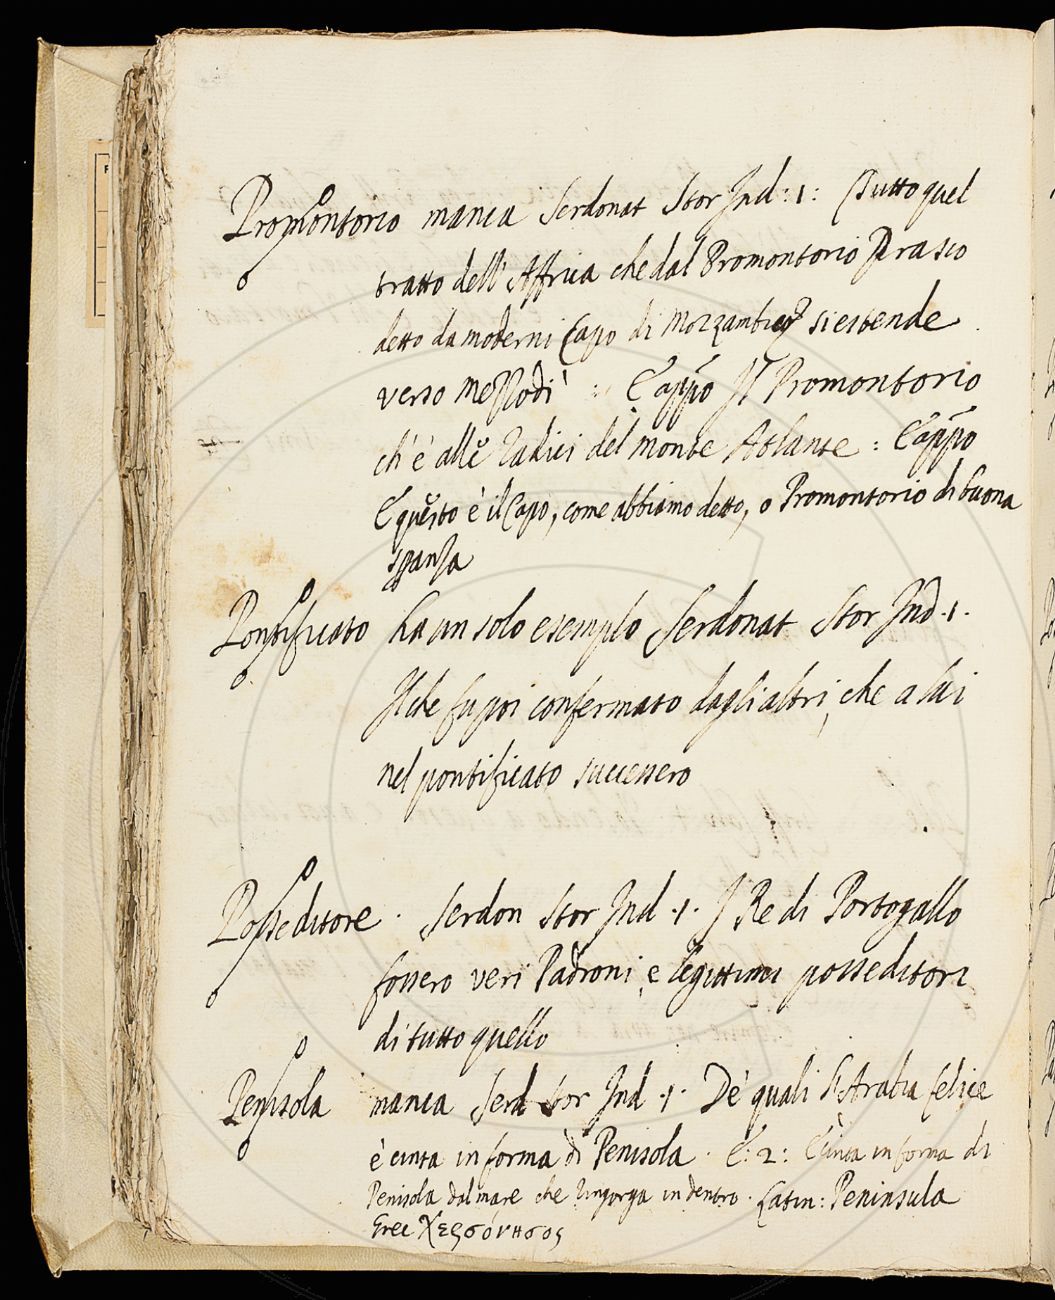 Promontorio manca Serdonat Stor Ind: 1: Tutto quel
tratto dell' Affrica che dal Promontorio Prasso
detto da moderni Capo di Mozzambic si estende
verso Mezzodì : E app̃o Il Promontorio
ch' è alle radici del monte Atlante : E app̃o
E questo è il Capo, come abbiamo detto, o Promontorio di buona
spanza
Pontificato ha un solo esemplo Serdonat Stor Ind. 1.
Il che fu poi confermato dagli altri, che a lui
nel pontificato successero
Posseditore . Serdon Stor Ind .1. I Re di Portogallo
fossero veri Padroni, e legittimi posseditori
di tutto quello
Penisola manca Serd Stor Ind .1. De quali l'Arabia felice
è cinta in forma di Penisola . E: 2: Cinta in forma di
Penisola dal mare che ringorga in dentro . Latin: Peninsula
Grec Χερσόνησος